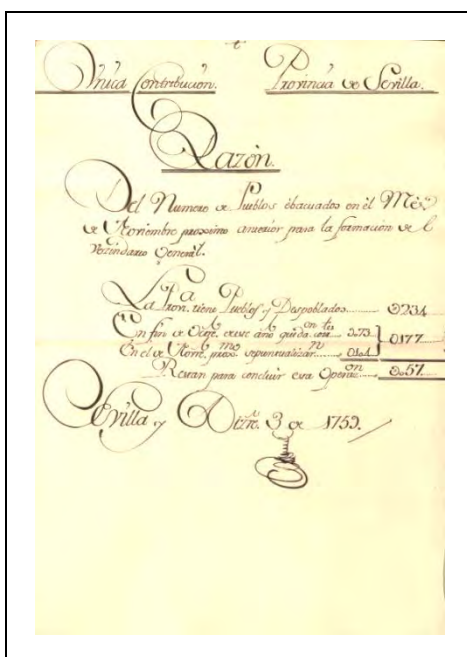 Vnica Contribución. Provincia de Sevilla.
Razón.
Del Numero de Pueblos ebacuados en el Mês
de Noviembre proximo anterior para la formacion del
Vezindario General.
La Prov.ª tiene Pueblos y Despoblados 0234
En fin de de este año queda 073
En el de Nov.re 0104
0177
Restan para concluir esta Operaz.on 0057.
Sevilla y Diz.re 3 de 1759.